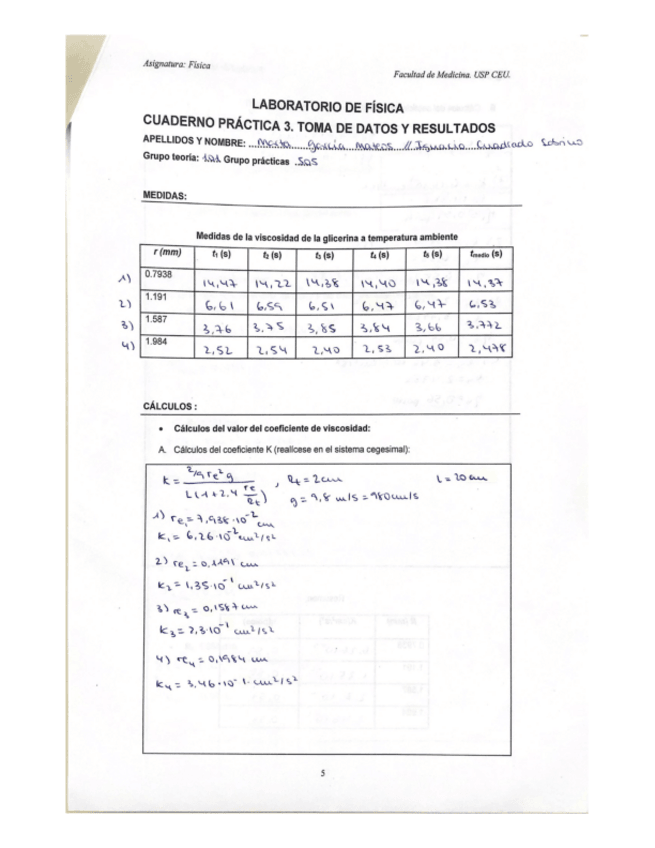 Asignatura: Física
Facultad de Medicina. USP CEU.
LABORATORIO DE FÍSICA
CUADERNO PRÁCTICA 3. TOMA DE DATOS Y RESULTADOS
APELLIDOS Y NOMBRE: García Mateos // Ignacio Cuadrado Sobrino
Grupo teoría: 101 Grupo prácticas 505
MEDIDAS:
Medidas de la viscosidad de la glicerina a temperatura ambiente
r (mm) t₁ (s) t₂ (s) t₃ (s) t₄ (s) t₅ (s) tmedio (s)
1) 0.7938 14,47 14,22 14,38 14,40 14,38 14,37
2) 1.191 6,61 6,59 6,51 6,47 6,47 6,53
3) 1.587 3,76 3,75 3,85 3,84 3,66 3,772
4) 1.984 2,52 2,54 2,40 2,53 2,40 2,478
CÁLCULOS :
• Cálculos del valor del coeficiente de viscosidad:
A. Cálculos del coeficiente K (realícese en el sistema cegesimal):
K = 2/9 re² g / L(1+2,4 re/Rt) , Rt = 2cm L = 20 cm
g = 9,8 m/s = 980 cm/s
1) re₁ = 7,938·10⁻² cm
K₁ = 6,26·10⁻² cm²/s²
2) re₂ = 0,1191 cm
K₂ = 1,35·10⁻¹ cm²/s²
3) re₃ = 0,1587 cm
K₃ = 2,3·10⁻¹ cm²/s²
4) re₄ = 0,1984 cm
K₄ = 3,46·10⁻1· cm²/s²
5